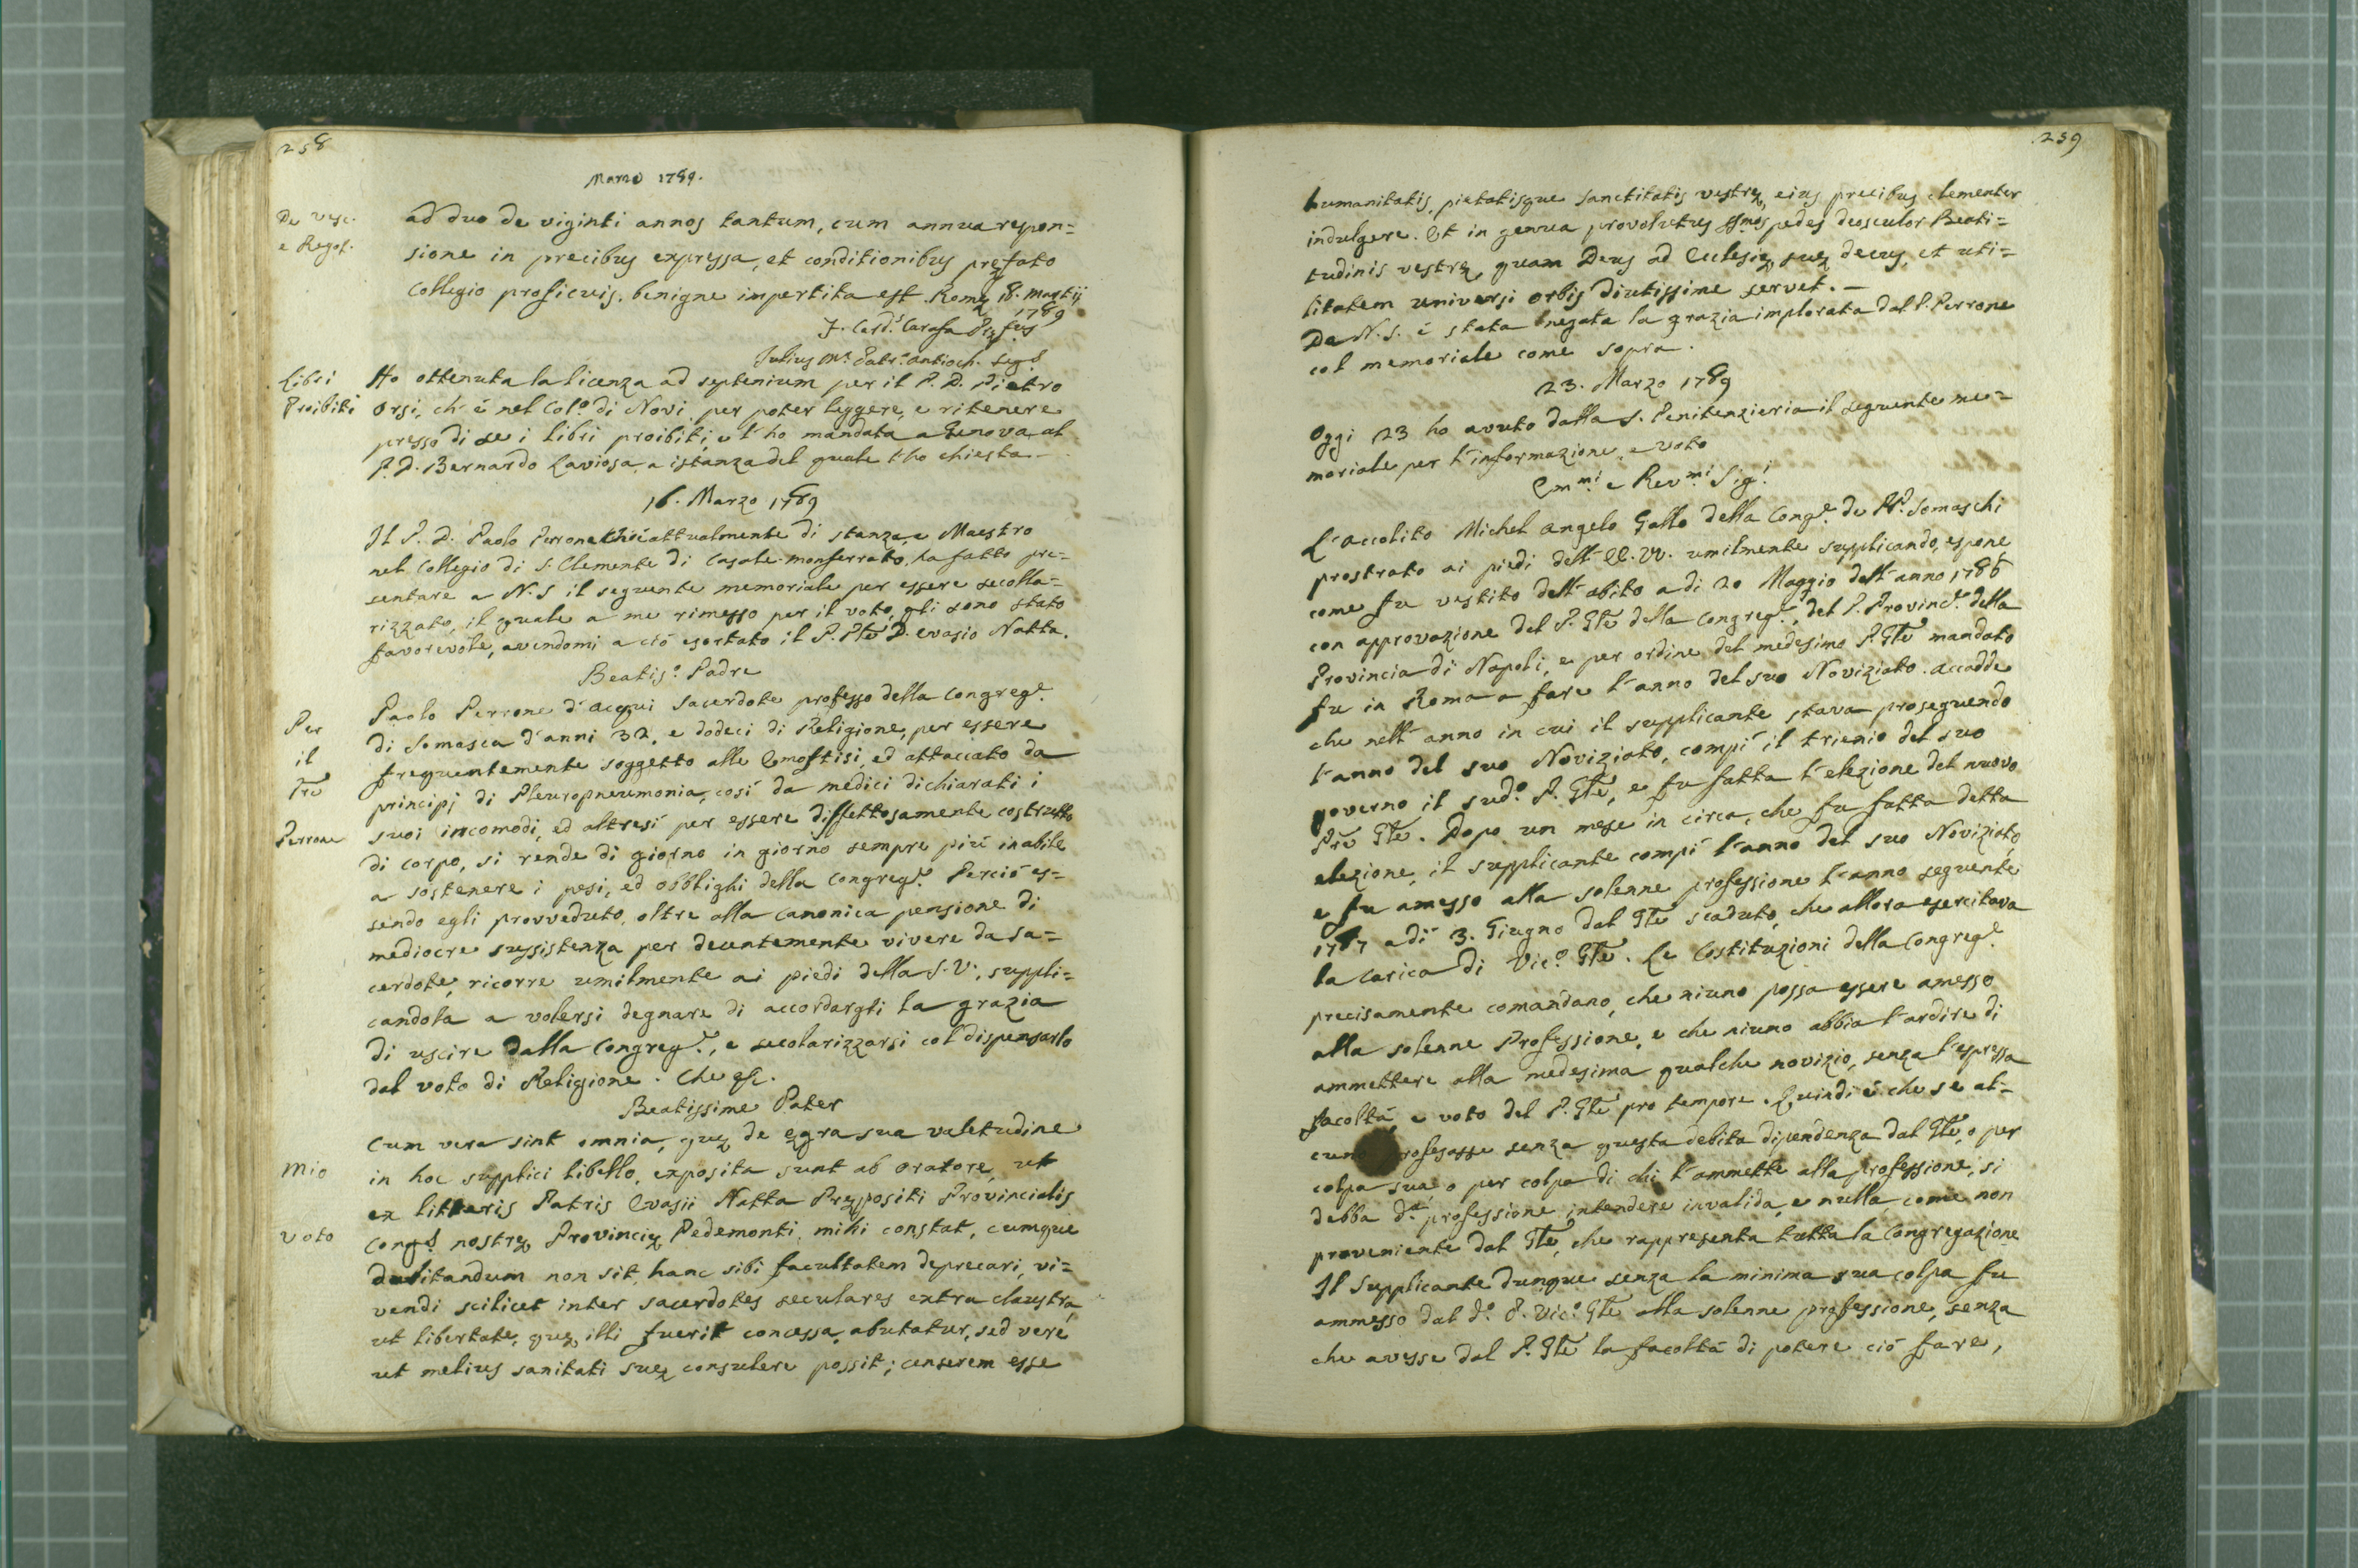 258
Marzo 1789.
De Vesc.
e Regol.
ad duo de viginti annos tantum, cum annua respon=
sione in precibus expressa, et conditionibus pręfato
Collegio proficuis, benigne impertita est. Romę 18. Martij
1789
F. Card.s Carafa Pręf.us
Julius M.a Patr.a Antioch. Seg.s
Libri
Proibiti
Ho ottenuta la licenza ad septenium per il P. D. Pietro
Orsi, ch'è nel Col.o di Novi per poter leggere, e ritenere
presso di se i libri proibiti, e l'ho mandata a Genova al
P. D. Bernardo Laviosa, a istanza del quale l'ho chiesta.
16. Marzo 1789
Il P. D. Paolo Perrone ch'è attualmente di stanza, e Maestro
nel Collegio di S. Clemente di Casale-monferrato, ha fatto pre=
sentare a N. S. il seguente memoriale per essere secola=
rizzato, il quale a me rimesso per il voto, gli sono stato
favorevole, avendomi a ciò esortato il P. Ple D. Evasio Natta.
Beatis.o Padre
Per
il
Pre
Perrone
Paolo Perrone d'Acqui Sacerdote professo della Congreg.e
di Somasca d'anni 32, e dodeci di Religione, per essere
frequentemente soggetto alle Emoftisi, ed attaccato da
principj di Pleuropneumonia, così da medici dichiarati i
suoi incomodi, ed altresì per essere diffettosamente costrutto
di corpo, si rende di giorno in giorno sempre più inabile
a sostenere i pesi, ed obblighi della Congreg.e Perciò es=
sendo egli provveduto, oltre alla canonica pensione di
mediocre sussistenza per decentemente vivere da sa=
cerdote, ricorre umilmente ai piedi della S. V., suppli=
candola a volersi degnare di accordargli la grazia
di uscire dalla Congreg.e, e secolarizzarsi col dispensarlo
dal voto di Religione. Che &c.
Beatissime Pater
Mio
Voto
Cum vera sint omnia, quę de ęgra sua valetudine
in hoc supplici libello, exposita sunt ab Oratore, ut
ex litteris Patris Evasii Natta Prępositi Provincialis
Cong.s nostrę Provincię Pedemonti, mihi constat, cumque
dubitandum non sit, hanc sibi facultatem deprecari, vi=
vendi scilicet inter sacerdotes seculares extra claustra,
ut libertate, quę illi fuerit concessa, abutatur, sed vere
ut melius sanitati suę consulere possit; censerem esse
259
humanitatis, pietatisque Sanctitatis vestrę, eius precibus clementer
indulgere. Et in genua provolutus ssmos pedes deosculor Beati=
tudinis vestrę, quam Deus ad Ecclesię suę decus, et uti=
litatem universi Orbis diutissime servet. —
Da N. S. è stata negata la grazia implorata dal P. Perrone
col memoriale come sopra.
23. Marzo 1789
Oggi 23 ho avuto dalla S. Penitenzieria il seguente me=
moriale per l'informazione, e voto
Emm.mi e Rev.mi Sig.i
L'accolito Michel Angelo Gallo della Cong.e de PP. Somaschi
prostrato ai piedi dell'EE. VV. umilmente supplicando, espone
come fu vestito dell'abito a dì 20 Maggio dell'anno 1786
con approvazione del P. Gle della Congreg.e, del P. Provinc.e della
Provincia di Napoli, e per ordine del medesimo P. Gle mandato
fu in Roma a fare l'anno del suo Noviziato. Accadde
che nell'anno in cui il supplicante stava proseguendo
l'anno del suo Noviziato, compì il trienio del suo
governo il sud.o P. Gle, e fu fatta l'elezione del nuovo
Pre Gle. Dopo un mese in circa, che fu fatta detta
elezione, il supplicante compì l'anno del suo Noviziato,
e fu amesso alla solenne professione l'anno seguente
1787 a dì 3. Giugno dal Gle scaduto, che allora esercitava
la carica di Vic.o Gle. Le Costituzioni della Congreg.e
precisamente comandano, che niuno possa essere amesso
alla solenne Professione, e che niuno abbia l'ardire di
ammettere alla medesima qualche novizio, senza l'espressa
facoltà, e voto del P. Gle pro tempore. Quindi è che se al=
cuno professasse senza questa debita dipendenza dal Gle, o per
colpa sua, o per colpa di chi l'ammette alla professione, si
debba d.a professione intendere invalida, e nulla, come non
proveniente dal Gle, che rappresenta tutta la Congregazione
Il Supplicante dunque senza la minima sua colpa fu
ammesso dal d.o P. Vic.o Gle alla solenne professione, senza
che avesse dal P. Gle la facoltà di potere ciò fare,